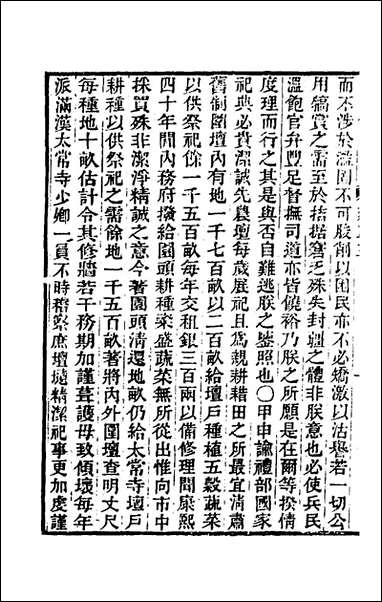 而不涉於濫固不可朘削以困民亦不必矯激以沽譽若一切公
用犒賞之需至於拮据窘乏殊失封疆之體非朕意也必使兵民
溫飽官弁豐足督撫司道亦皆饒裕乃朕之所願是在爾等揆情
度理而行之其是與否自難逃朕之鑒照也〇甲申諭禮部國家
祀典必貴潔誠先農壇每歲展祀且爲親耕耤田之所最宜清肅
舊制圍壇內有地一千七百畝以二百畝給壇戶種植五穀蔬菜
以供祭祀餘一千五百畝每年交租銀三百兩以備修理閒康熙
四十年閒內務府撥給園頭耕種粢盛蔬菜無所從出惟向市中
採買殊非潔淨精誠之意今著園頭清還地畝仍給太常寺壇戶
耕種以供祭祀之需餘地一千五百畝著將內外圍壇查明丈尺
每種地十畝估計令其修牆若干務期加謹葺護毋致傾壞每年
派滿漢太常寺少卿一員不時稽察庶壇壝精潔祀事更加虔謹